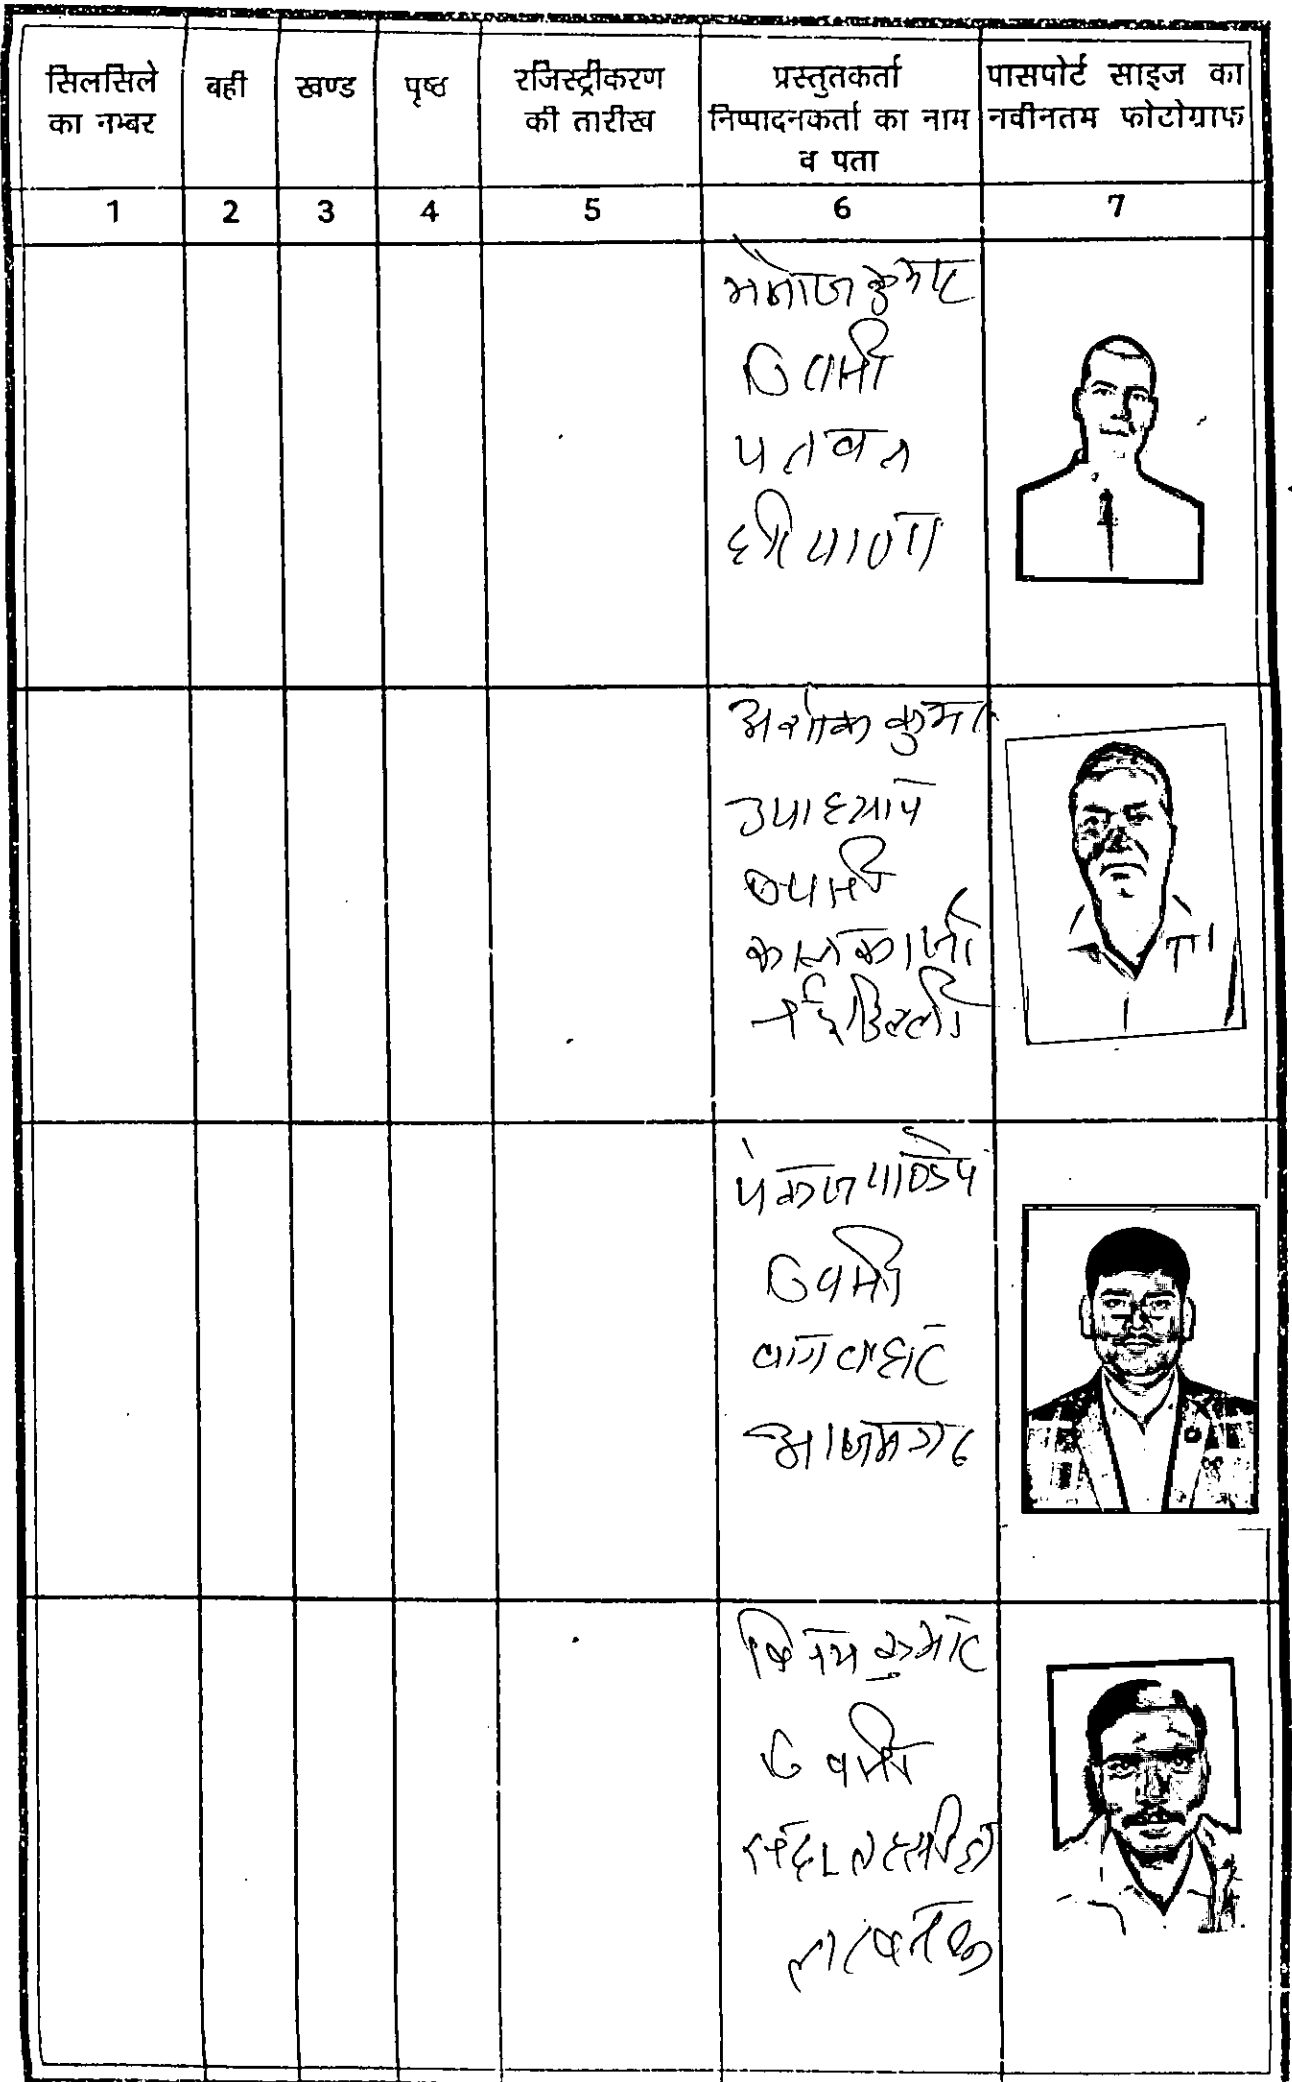 सिलसिले का नम्बर
बही
खण्ड
पृष्ठ
रजिस्ट्रीकरण की तारीख
प्रस्तुतकर्ता निष्पादनकर्ता का नाम व पता
पासपोर्ट साइज का नवीनतम फोटोग्राफ
1 2 3 4 5 6 7
मनोज कुमार
पलवल
हरियाणा
अशोक कुमार
उपाध्याय
कालकाजी
नई दिल्ली
पंकज पाण्डेय
आजमगढ
विनय कुमार
लखनऊ